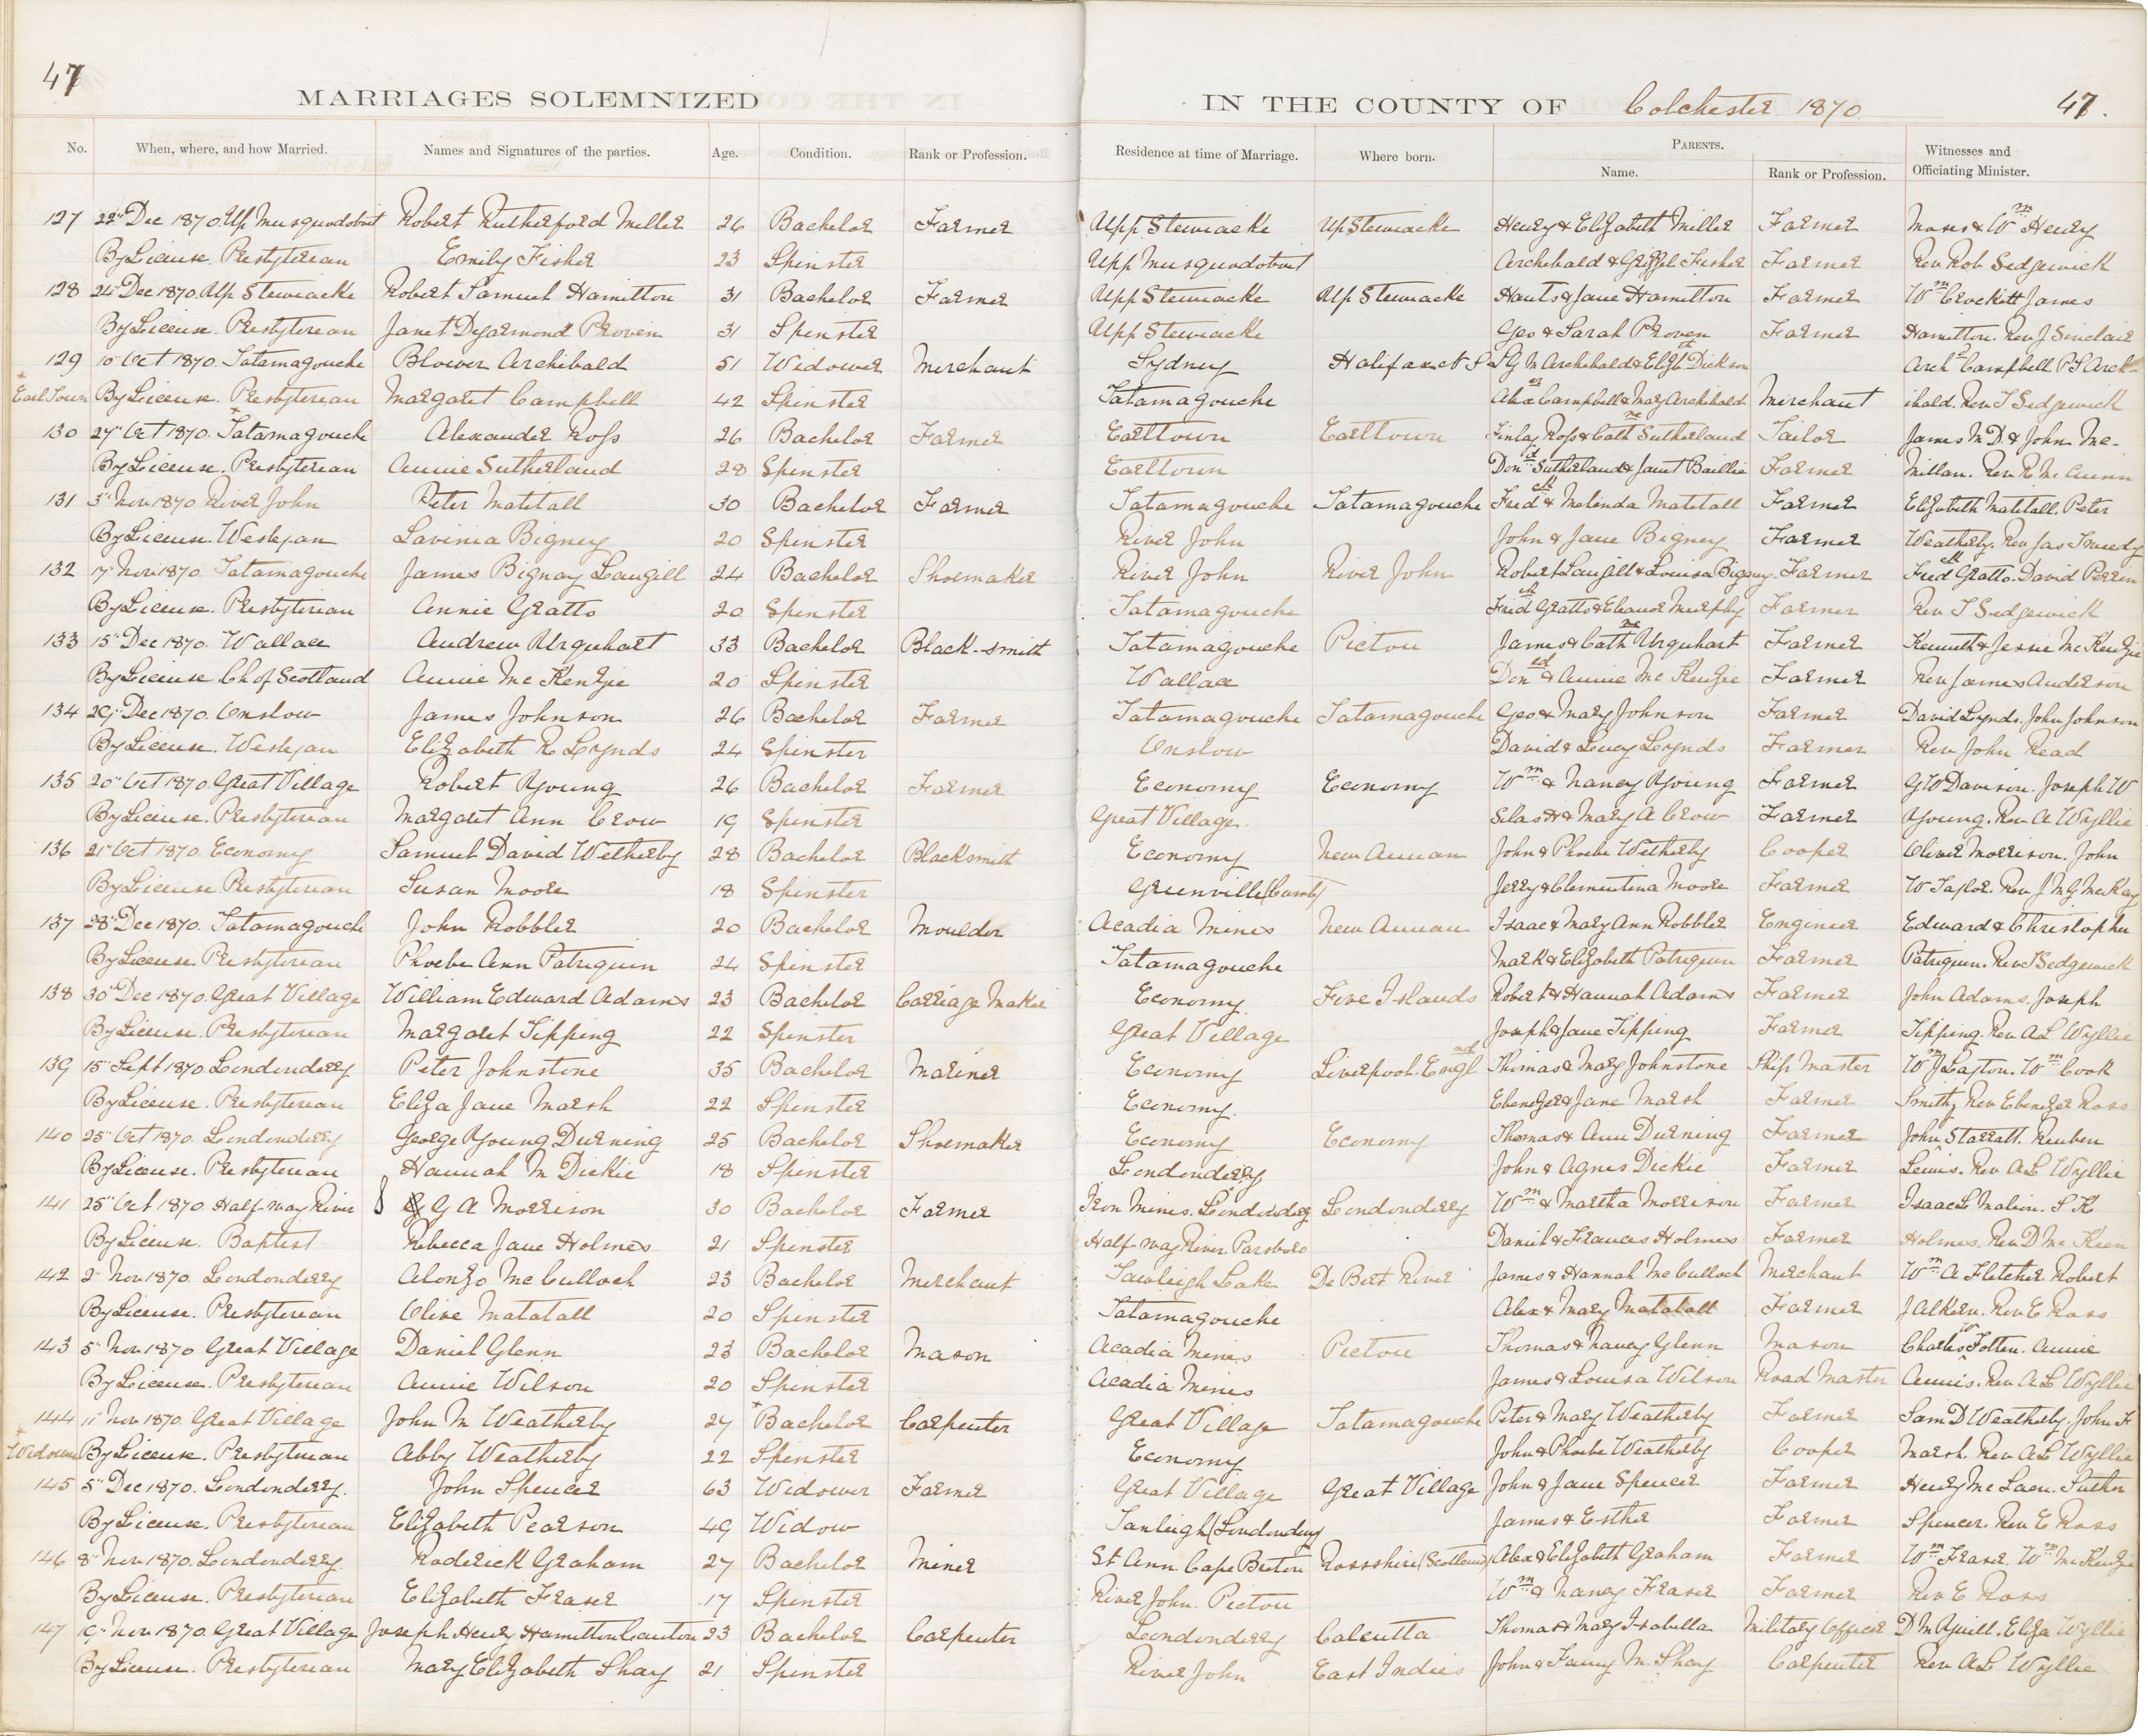 47
MARRIAGES SOLEMNIZED IN THE COUNTY OF Colchester 1870. 47.
No. When, where, and how Married. Names and Signatures of the parties. Age. Condition. Rank or Profession. Residence at time of Marriage. Where born. PARENTS. Name. Rank or Profession. Witnesses and Officiating Minister.
127 22" Dec 1870. Up Musquodoboit Robert Rutherford Miller 26 Bachelor Farmer Upp Stewiacke Up Stewiacke Henry & Elizabeth Miller Farmer Moses & Wm Henry
By License. Presbyterian Emily Fisher 23 Spinster Upp Musquodoboit Archibald & Fisher Farmer Rev Rob Sedgewick
128 24" Dec 1870. Up Stewiacke Robert Samuel Hamilton 31 Bachelor Farmer Upp Stewiacke Up Stewiacke Hants & Jane Hamilton Farmer Wm Crockett James
By License. Presbyterian Janet Dyarmond Proven 31 Spinster Upp Stewiacke Geo & Sarah Proven Farmer Hamilton. Rev J Sinclair
129 10" Oct 1870. Tatamagouche Blowers Archibald 51 Widower Merchant Sydney Halifax S G W Archibald & Elizth Dickson Archd Campbell P S Arch-
* Earl Town By License. Presbyterian Margaret Campbell 42 Spinster Tatamagouche Alexr Campbell & Mary Archibald Merchant ibald. Rev T Sedgewick
130 27" Oct 1870. * Tatamagouche Alexander Ross 26 Bachelor Farmer Earltown Earltown Finlay Ross & Cathne Sutherland Tailor James McD. & John Mc-
By License. Presbyterian Annie Sutherland 28 Spinster Earltown Dond Sutherland & Janet Baillie Farmer Millan. Rev R McCunn
131 3" Nov 1870 River John Peter Matatall 30 Bachelor Farmer Tatamagouche Tatamagouche Fredck & Melinda Matatall Farmer Elizabeth Matatall. Peter
By License. Wesleyan Lavinia Bigney 20 Spinster River John John & Jane Bigney Farmer Weatherby. Rev Jas Tweedy
132 17" Nov 1870. Tatamagouche James Bignay Langill 24 Bachelor Shoemaker River John River John Robert Langill & Louisa Bigney Farmer Fredck Gratto. David Perrin
By License. Presbyterian Annie Gratto 20 Spinster Tatamagouche Fredck Gratto & Eleanor Murphy Farmer Rev T Sedgewick
133 15" Dec 1870. Wallace Andrew Urquhart 33 Bachelor Black-smith Tatamagouche Pictou James & Cathne Urquhart Farmer Kenneth & Jessie McKenzie
By License Ch of Scotland Annie McKenzie 20 Spinster Wallace Dond & Annie McKenzie Farmer Rev James Anderson
134 29" Dec 1870. Onslow James Johnson 26 Bachelor Farmer Tatamagouche Tatamagouche Geo & Mary Johnson Farmer David Lynds. John Johnson
By License. Wesleyan Elizabeth R Lynds 24 Spinster Onslow David & Lucy Lynds Farmer Rev John Read
135 20" Oct 1870 Great Village Robert Young 26 Bachelor Farmer Economy Economy Wm & Nancy Young Farmer G W Davison. Joseph W
By License. Presbyterian Margaret Ann Crow 19 Spinster Great Village. Silas H & Mary A Crow Farmer Young. Rev A Wyllie
136 21" Oct 1870. Economy Samuel David Wetherby 28 Bachelor Blacksmith Economy New Annan John & Phoebe Wetherby Cooper Oliver Morrison. John
By License Presbyterian Susan Moore 18 Spinster Greenville (Cumb) Jerry & Clementina Moore Farmer W Taylor. Rev J McG McKay
137 28" Dec 1870. Tatamagouche John Robbler 20 Bachelor Moulder Acadia Mines New Annan Isaac & Mary Ann Robbler Engineer Edward & Christopher
By License Presbyterian Phoebe Ann Patriquin 24 Spinster Tatamagouche Mark & Elizabeth Patriquin Farmer Patriquin. Rev T Sedgewick
138 30" Dec 1870. Great Village William Edward Adams 23 Bachelor Carriage Maker Economy Five Islands Robert & Hannah Adams Farmer John Adams. Joseph
By License. Presbyterian Margaret Tipping 22 Spinster Great Village Joseph & Jane Tipping Farmer Tipping. Rev A L Wyllie
139 15" Sept 1870 Londonderry Peter Johnstone 35 Bachelor Mariner Economy Liverpool. Englnd Thomas & Mary Johnstone Ship Master Wm J Layton. Wm Cook
By License. Presbyterian Eliza Jane Marsh 22 Spinster Economy. Ebenezer & Jane Marsh Farmer Smith. Rev Ebenezer Ross
140 25" Oct 1870. Londonderry George Young Durning 25 Bachelor Shoemaker Economy Economy Thomas & Ann Durning Farmer John Starratt. Reuben
By License. Presbyterian Hannah M Dickie 18 Spinster Londonderry John & Agnes Dickie Farmer Lewis. Rev A L Wyllie
141 25" Oct 1870 Half-way River G A Morrison 30 Bachelor Farmer Iron Mines. Londonderry Londonderry Wm & Martha Morrison Farmer Isaac L Mabion. S K
By License. Baptist Rebecca Jane Holmes 21 Spinster Half-way River Parsboro Daniel & Frances Holmes Farmer Holmes. Rev D McKeen
142 2" Nov 1870. Londonderry Alonzo McCulloch 23 Bachelor Merchant Lake De Bert River James & Hannah McCulloch Merchant Wm A Fletcher. Robert
By License. Presbyterian Olive Matatall 20 Spinster Tatamagouche Alex & Mary Matatall Farmer J Alkern. Rev E Ross
143 5" Nov 1870 Great Village Daniel Glenn 23 Bachelor Mason Acadia Mines Pictou Thomas & Nancy Glenn Mason Charles W Totten. Annie
By License. Presbyterian Annie Wilson 20 Spinster Acadia Mines James & Louisa Wilson Road Master Annis. Rev A L Wyllie
144 11" Nov 1870. Great Village John M Weatherby 27 * Bachelor Carpenter Great Village Tatamagouche Peter & Mary Weatherby Farmer Sam D Weatherby. John F
* Widower By License. Presbyterian Abby Weatherby 22 Spinster Economy John & Phoebe Weatherby Cooper Marsh. Rev A L Wyllie
145 5" Dec 1870. Londonderry. John Spencer 63 Widower Farmer Great Village Great Village John & Jane Spencer Farmer Henry McLaen. Luther
By License. Presbyterian Elizabeth Pearson 49 Widow (Londonderry James & Esther Farmer Spencer. Rev E Ross
146 8" Nov 1870. Londonderry. Roderick Graham 27 Bachelor Miner St Ann Cape Breton Rossshire (Scotland) Alex & Elizabeth Graham Farmer Wm Fraser. Wm McKenzie
By License. Presbyterian Elizabeth Fraser 17 Spinster River John. Pictou Wm & Nancy Fraser Farmer Rev E Ross
147 19" Nov 1870. Great Village Joseph Henry Hamilton Canton 23 Bachelor Carpenter Londonderry Calcutta Thomas & Mary Isabella Military Officer D McQuill. Eliza Wyllie
By License. Presbyterian Mary Elizabeth Shay 21 Spinster River John East Indies John & Fanny M. Shay Carpenter Rev A L Wyllie